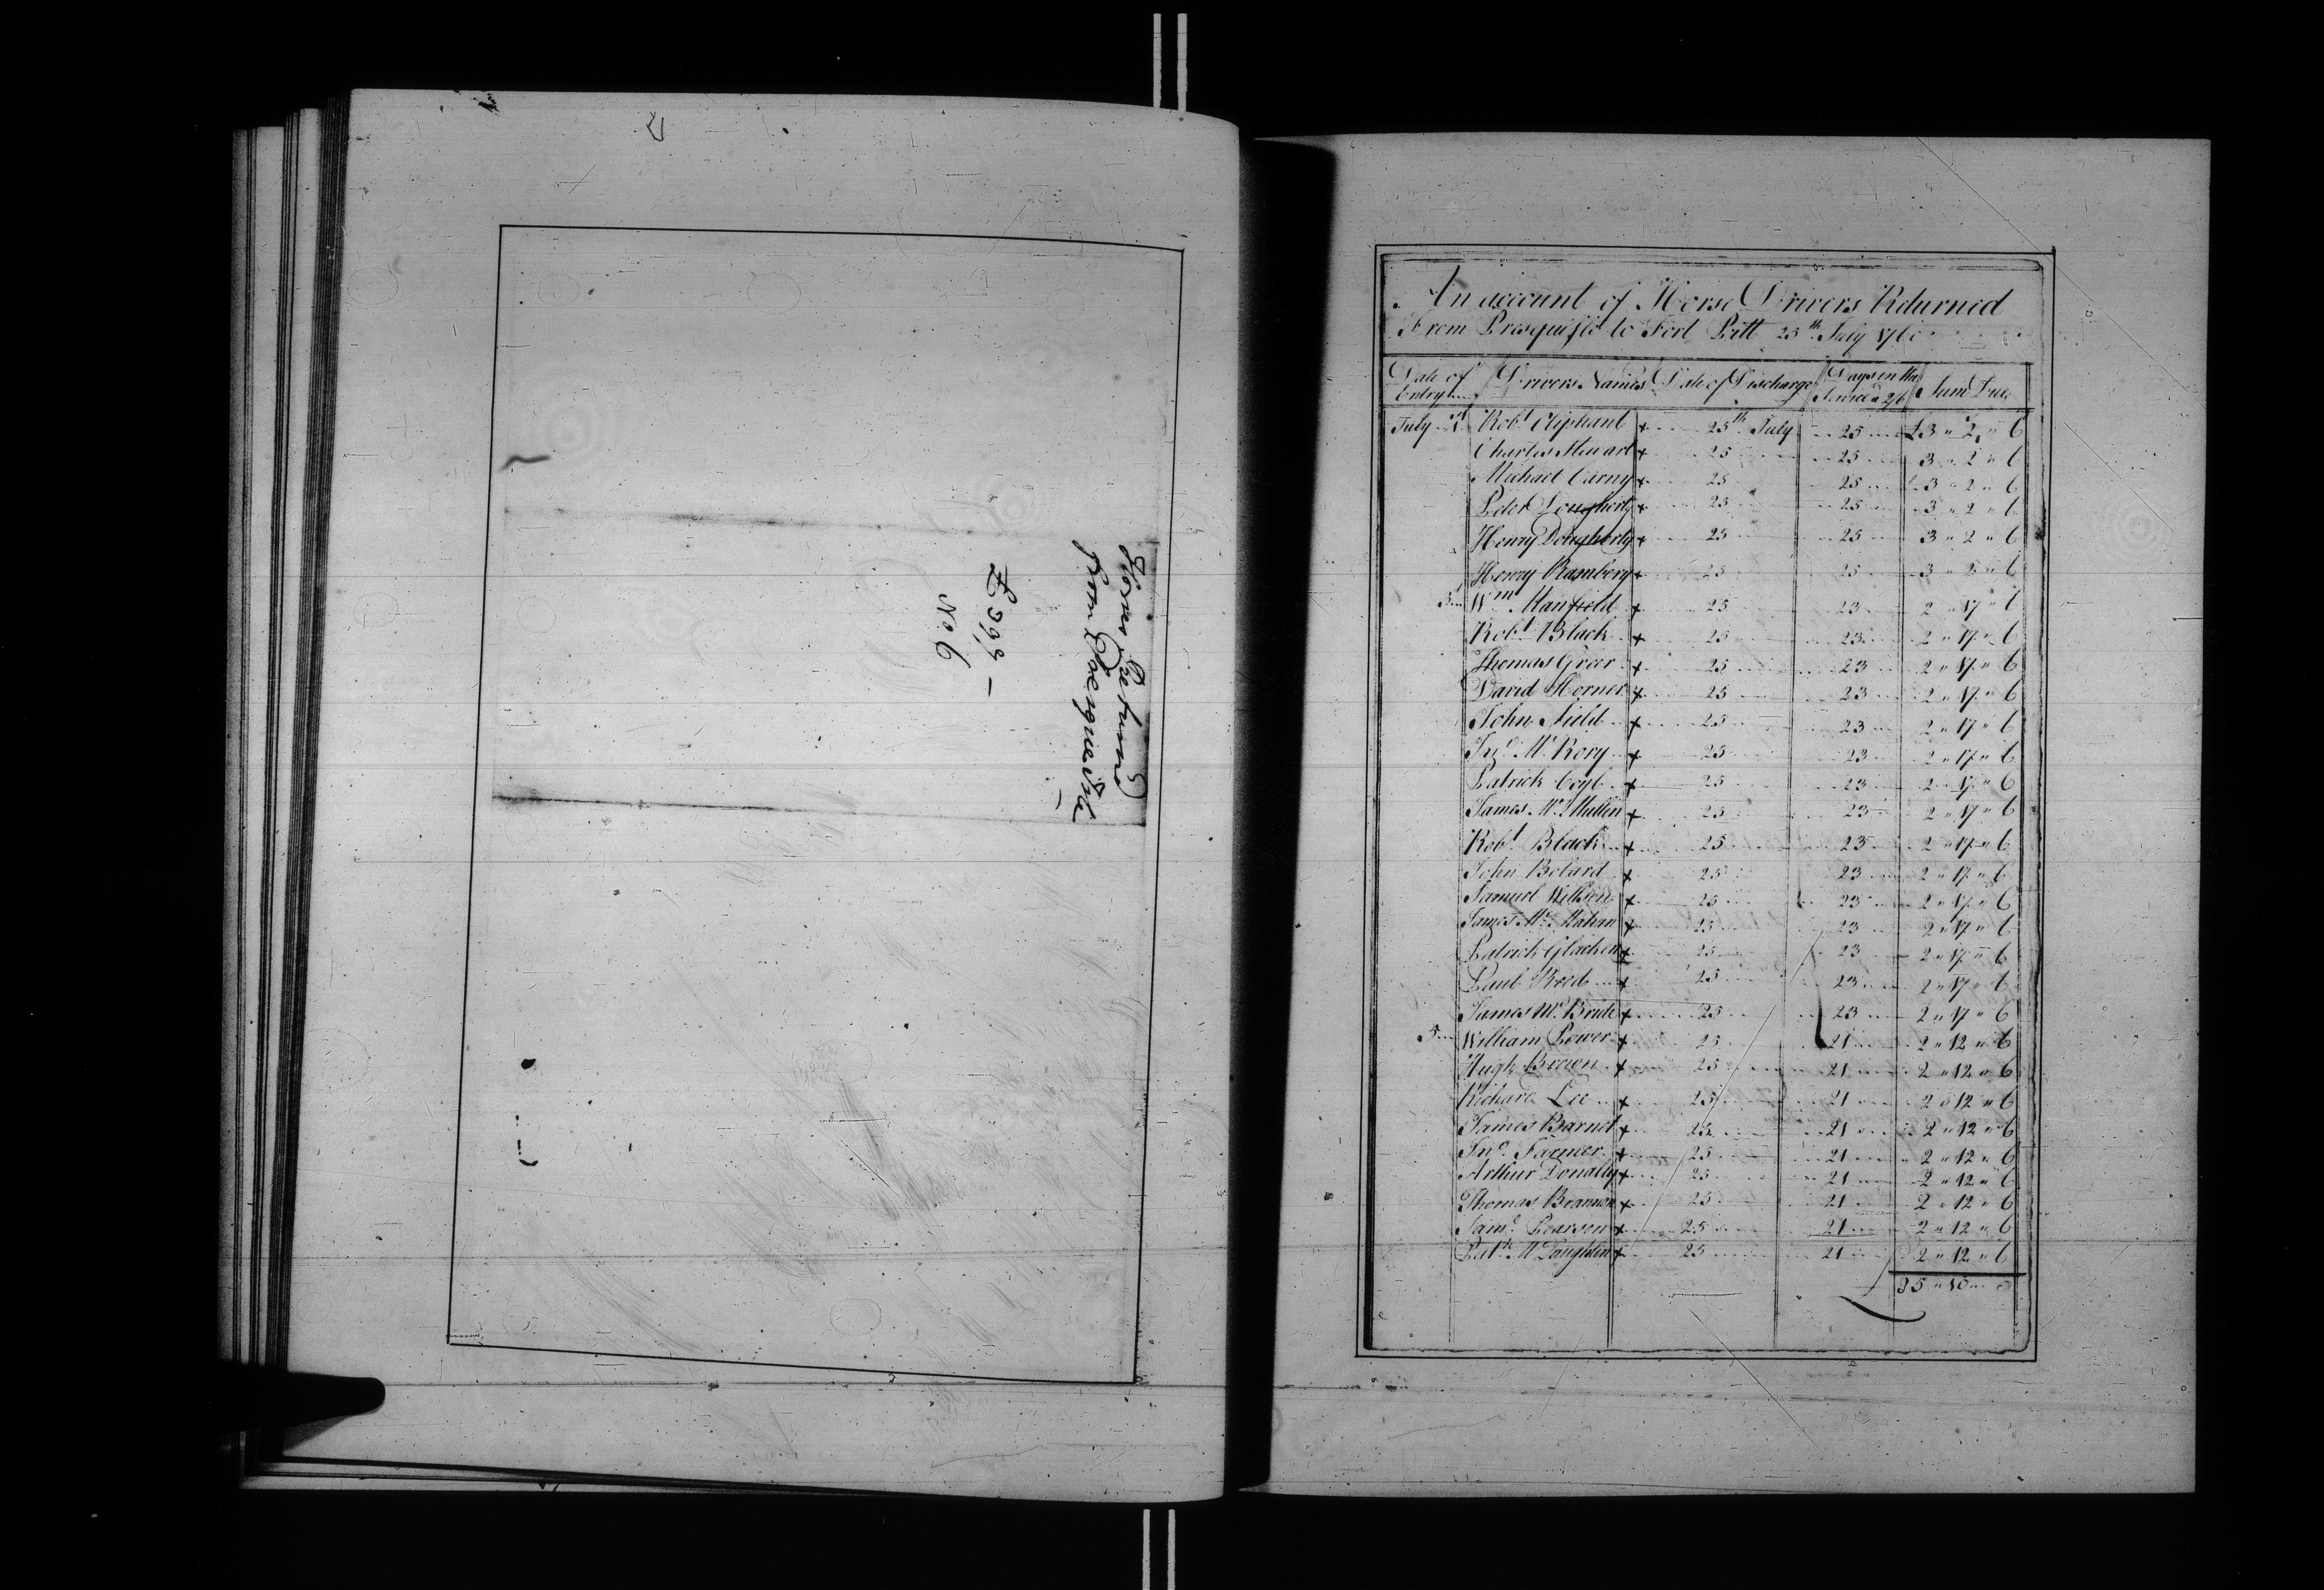 Horses Returned
from Presqueisle
£399 –
No. 6
An account of Horse Drivers Returned
From Presquisle to Fort Pitt 25th July 1760
Date of Entry Drivers Names Date of Discharge Days in the Service a 2/6 Sum Due
July 1st Robt Oliphant + 25th July 25 £3 " 2 " 6
Charles Stewart + 25 25 3 " 2 " 6
Michael Carny + 25 25 3 " 2 " 6
Peter Dougherty + 25 25 3 " 2 " 6
Henry Dougherty + 25 25 3 " 2 " 6
Henry Ramberg + 25 25 3 " 2 " 6
3 Wm Manfield + 25 23 2 " 17 " 6
Robt Black + 25 23 2 " 17 " 6
Thomas Greer + 25 23 2 " 17 " 6
David Horner + 25 23 2 " 17 " 6
John Nield + 25 23 2 " 17 " 6
Jno McRory + 25 23 2 " 17 " 6
Patrick Coyl + 25 23 2 " 17 " 6
James McMullen + 25 23 2 " 17 " 6
Robt Black + 25 23 2 " 17 " 6
John Bolard + 25 23 2 " 17 " 6
Samuel Willson + 25 23 2 " 17 " 6
James McMahan + 25 23 2 " 17 " 6
Patrick Glacken + 25 23 2 " 17 " 6
Paul Reed + 25 23 2 " 17 " 6
James McBride + 25 23 2 " 17 " 6
5 William Power + 25 21 2 " 12 " 6
Hugh Brown + 25 21 2 " 12 " 6
Richard Lee + 25 21 2 " 12 " 6
James Barnet + 25 21 2 " 12 " 6
Jno Farmer + 25 21 2 " 12 " 6
Arthur Donally + 25 21 2 " 12 " 6
Thomas Brannon + 25 21 2 " 12 " 6
Saml Pearson + 25 21 2 " 12 " 6
Patk McLaughlin + 25 21 2 " 12 " 6